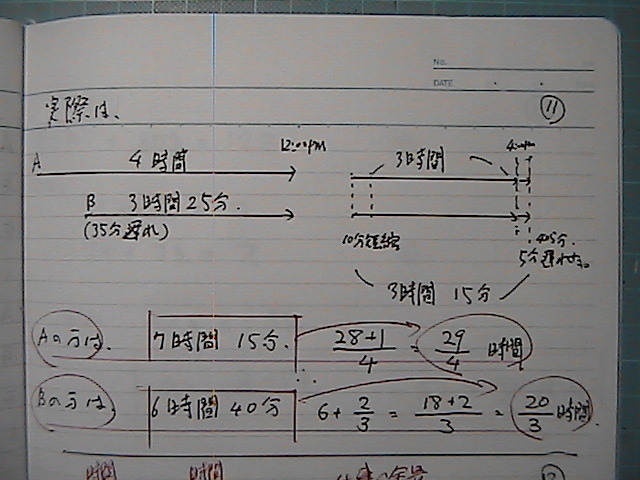 No.
DATE
11
実際は、
12:00pm 4:00pm
A 4時間 3時間
B 3時間25分.
(35分遅れ)
10分短縮 4:05分.
5分遅れた。
3時間 15分
Aの方は、 7時間 15分. 28+1/4 = 29/4 時間
Bの方は、 6時間 40分 6+2/3 = 18+2/3 = 20/3 時間
時間 時間
12